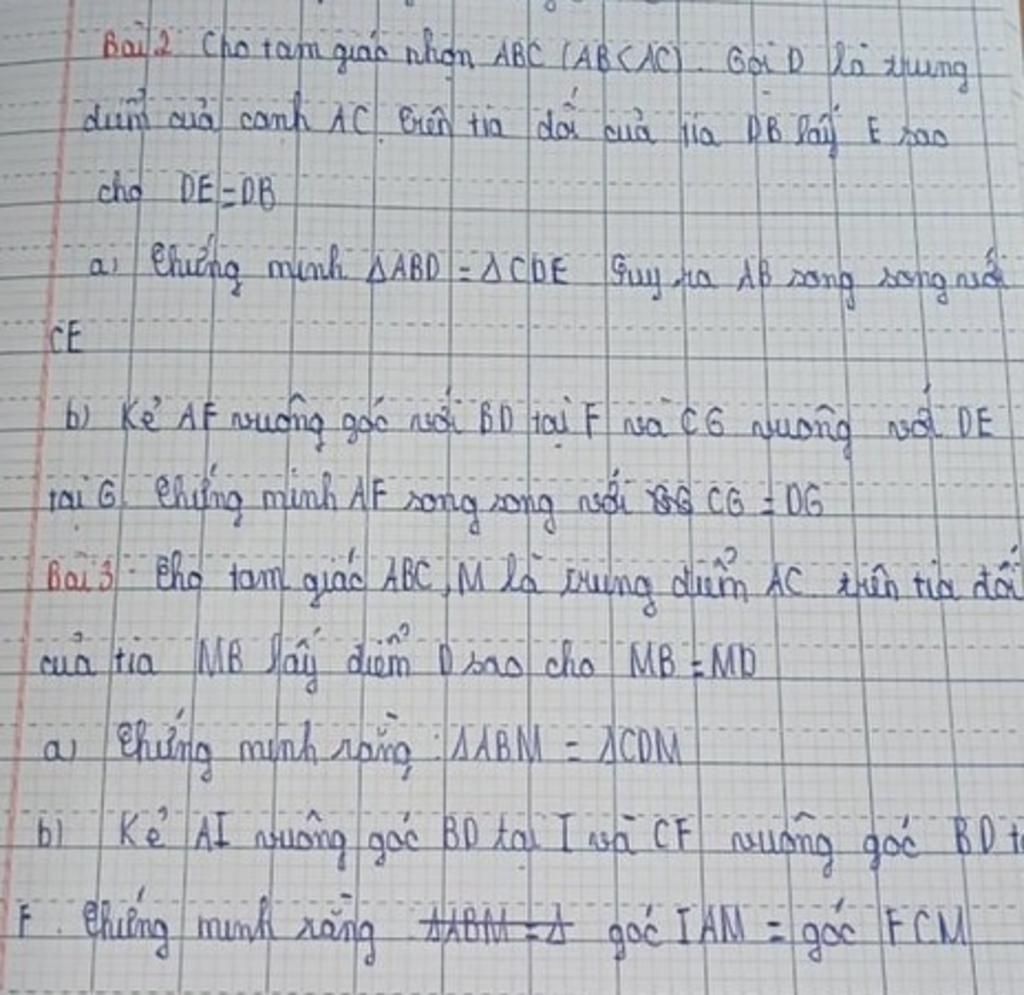 Bài 2 Cho tam giác nhọn ABC (AB<AC). Gọi D là trung
điểm của cạnh AC Trên tia đối của tia DB lấy E sao
cho DE=DB
a) Chứng minh ΔABD = ΔCDE Suy ra AB song song với
CE
b) Kẻ AF vuông góc với BD tại F và CG vuông với DE
tại G Chứng minh AF song song với CG = DG
Bài 3 Cho tam giác ABC, M là trung điểm AC trên tia đối
của tia MB lấy điểm D sao cho MB = MD
a) Chứng minh rằng: ΔABM = ΔCDM
b) Kẻ AI vuông góc BD tại I và CF vuông góc BD t
F. Chứng minh rằng góc IAM = góc FCM